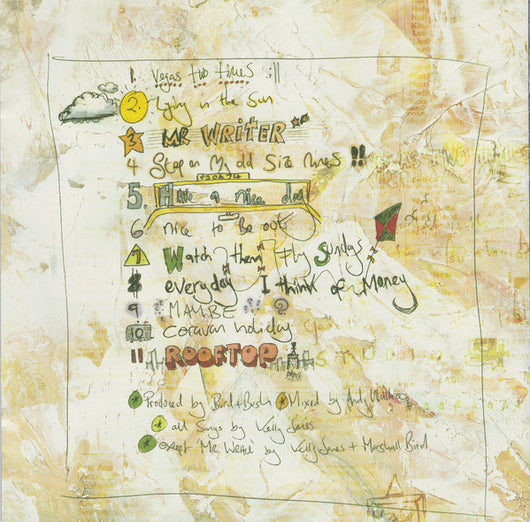 1. Vegas two times :||
2. Lying in the Sun.
3 MR WRITER
4 Step on My old Size Nines !!
5. Have a nice day
6. nice to be out
7 Watch them fly Sundays
8 everyday I think of Money
9 MAYBE ?
10 caravan holiday
11 ROOFTOP
* Produced by Bird + Bush * Mixed by Andy Wallace
* all Songs by Kelly Jones
* except Mr Writer by Kelly Jones + Marshall Bird